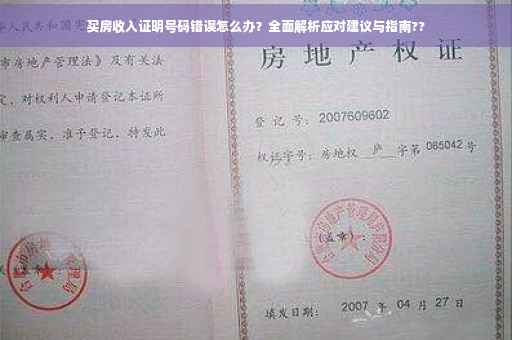 买房收入证明号码错误怎么办？全面解析应对建议与指南??
人民共和国宪
市房地产管理法》及有关法
定，对权利人申请登记本证所
审查属实，准予登记，特发此
房地产权证
登记号：2007609602
权证字号：房地权 庐 字第 065042 号
(盖章)：
填发日期：2007 年 04 月 27 日